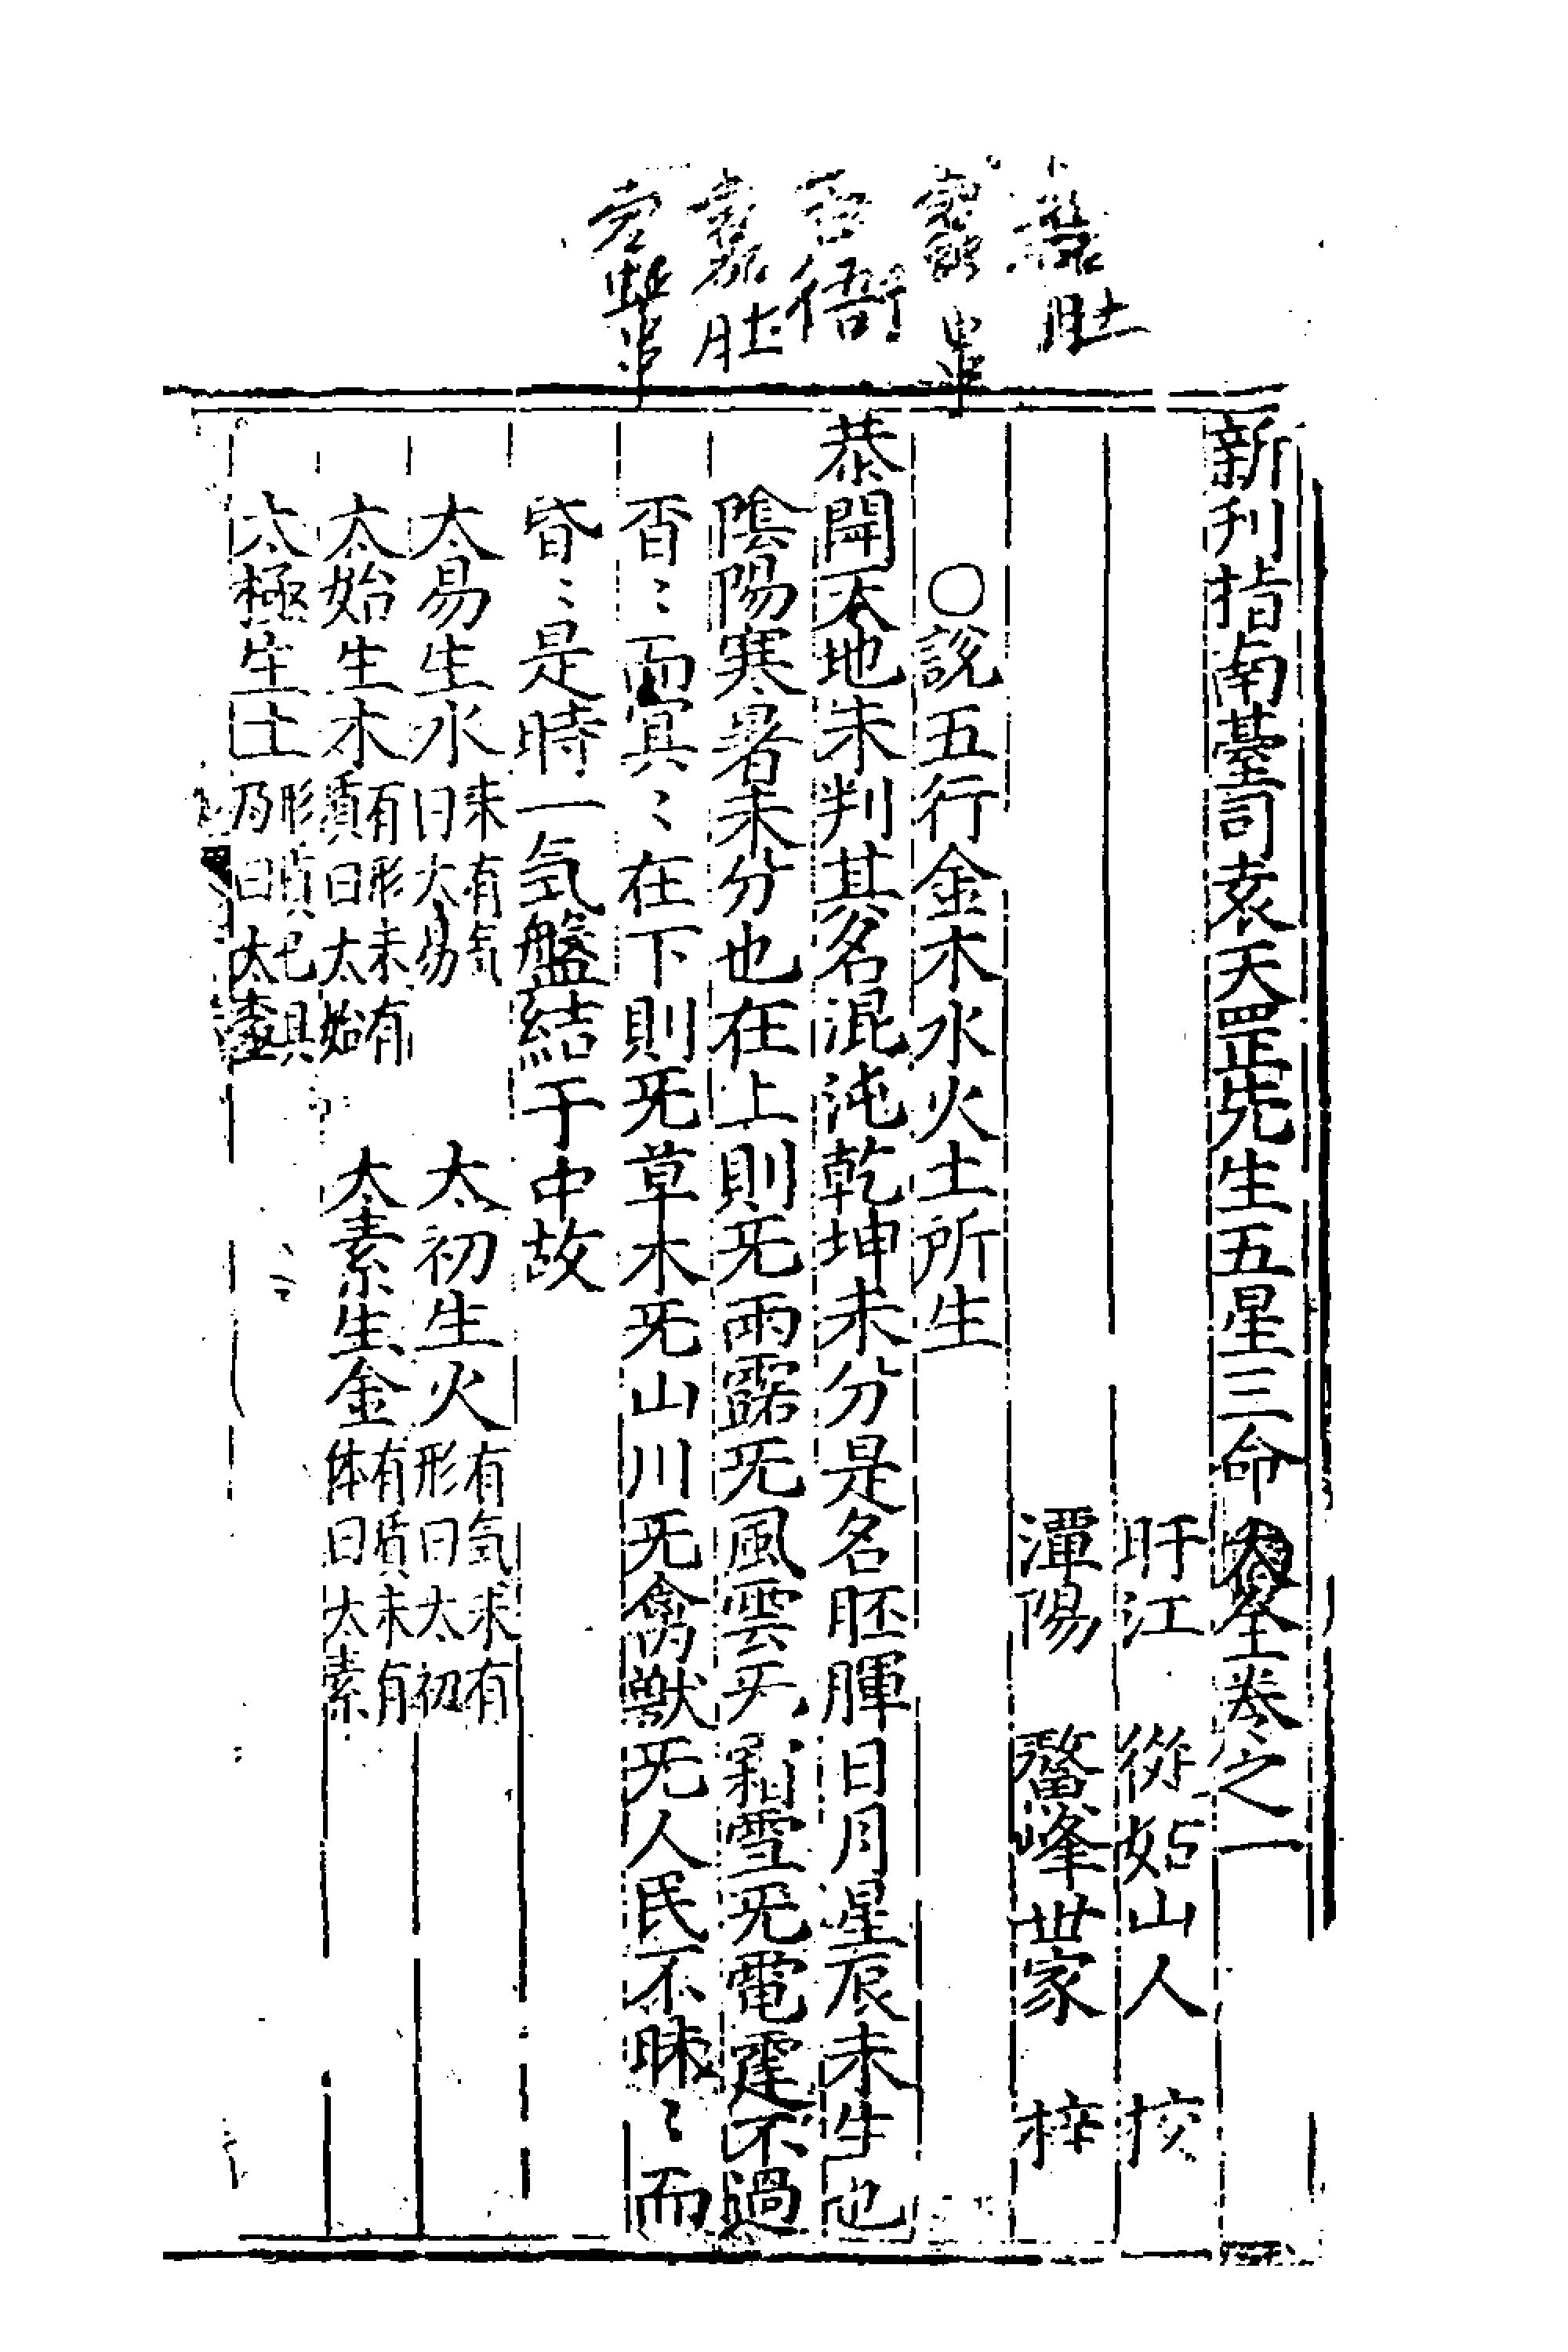 新刊指南臺司袁天罡先生五星三命大全卷之一
盱江 從姑山人 挍
潭陽 鰲峰世家 梓
○說五行金木水火土所生
恭聞天地未判其名混沌乾坤未分是名胚腪日月星辰未生也
陰陽寒暑未分也在上則旡雨露旡風雲旡霜雪旡電霆不過
杳〻而冥〻在下則旡草木旡山川旡禽獸旡人民不昧〻而
昏〻是時一氣盤結于中故
太易生水未有氣曰太易 太初生火有氣未有形曰太初
太始生木有形未有質曰太始 太素生金有質未有体曰太素
太極生土形質已具乃曰太極